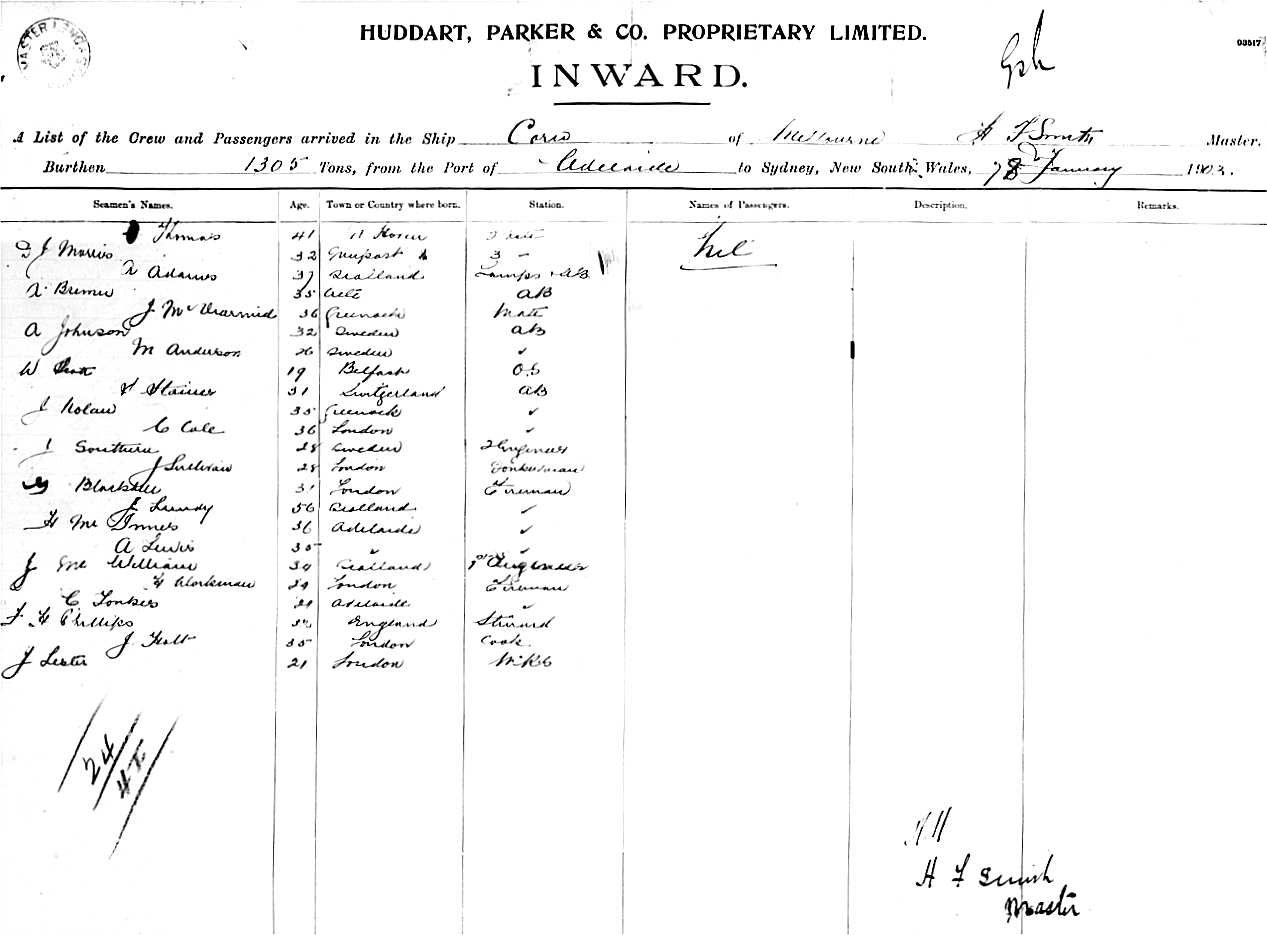 HUDDART, PARKER & CO. PROPRIETARY LIMITED.
03517
INWARD.
A List of the Crew and Passengers arrived in the Ship Corio of Melbourne H F Smith Master.
Burthen 1305 Tons, from the Port of Adelaide to Sydney, New South Wales, January 1903.
Seamen's Names. Age. Town or Country where born. Station. Names of Passengers. Description. Remarks.
Thomas 41 2 Mate Nil
D J Morris 32 3 "
A Adams 37 Scotland Lamps & AB
A Bremer 35 AB
J McDiarmid 36 Greenock Mate
A Johnson 32 Sweden AB
M Anderson 26 Sweden ✓
W Scott 19 Belfast OS
Stainer 31 Switzerland AB
J Nolan 35 Greenock ✓
C Cole 36 London ✓
Southern 28 Sweden 2 Engineer
J Sullivan 28 London Donkeyman
31 London Fireman
J Lundy 56 Scotland ✓
H McInnes 36 Adelaide ✓
A Lewis 35 ✓ ✓
J McWilliam 34 Scotland 1st Engineer
H Workman 39 London Fireman
C Tonkes Adelaide ✓
F H Phillips England Steward
J Holt 35 London Cook
J Lester 21 London
24
H F Smith
Master